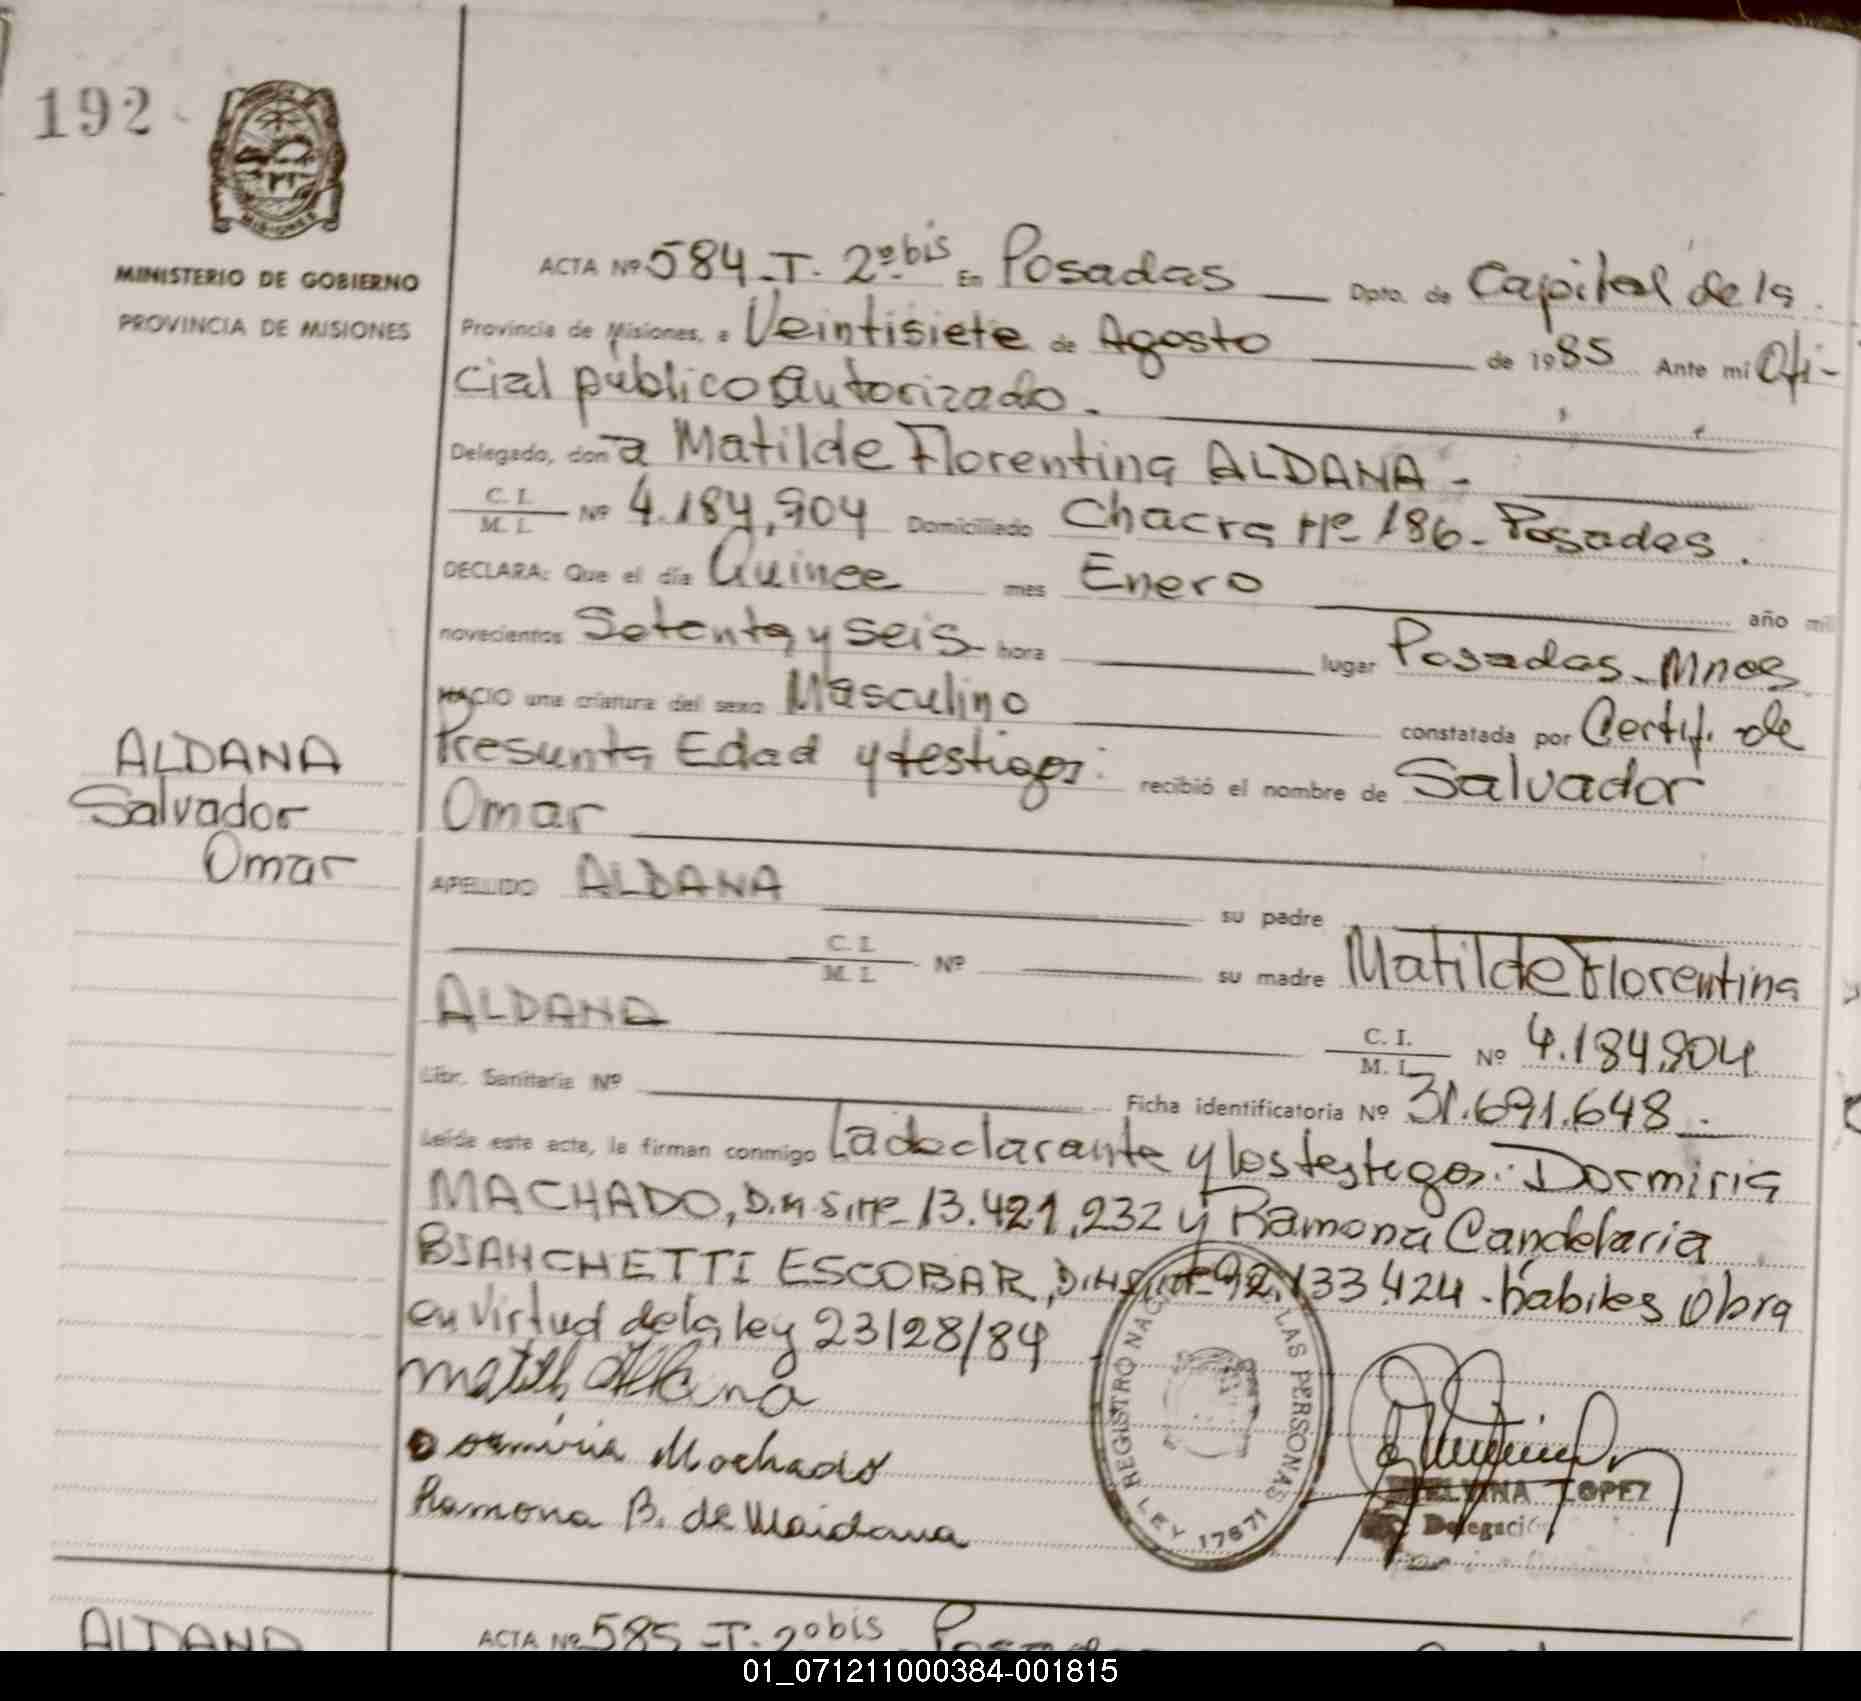 192
MISIONES
MINISTERIO DE GOBIERNO
PROVINCIA DE MISIONES
ACTA Nº 584-T. 2º bis En Posadas Dpto. de Capital de la
Provincia de Misiones, a Veintisiete de Agosto de 1985 Ante mi Ofi-
cial público autorizado.
Delegado, don a Matilde Florentina ALDANA -
C. I.
M. I. Nº 4.184,904 Domiciliado Chacra Nº 186- Posadas.
DECLARA: Que el día Quince mes Enero año mil
novecientos Setenta y seis- hora lugar Posadas-Mnes
NACIO una criatura del sexo Masculino constatada por Certif. de
Presunta Edad y testigos: recibió el nombre de Salvador
Omar
ALDANA
Salvador
Omar
APELLIDO ALDANA su padre
C. I.
M. I. Nº su madre Matilde Florentina
ALDANA C. I.
M. I. Nº 4.184.904
Libr. Sanitaria Nº Ficha identificatoria Nº 31.691.648-.
Leída este acta, la firman conmigo La declarante y los testigos: Dormiria
MACHADO, D.N.S.Nº- 13.421,232 y Ramona Candelaria
BIANCHETTI ESCOBAR, 92.133.424. habiles Obra
en virtud de la ley 23128/84
Dormiria Machado
Ramona B. de Maidana
REGISTRO NAC LAS PERSONAS
LEY 17671
ELVINA LOPEZ
Delegación
ALDANA
ACTA Nº 585-T. 2º bis Posadas
01_071211000384-001815